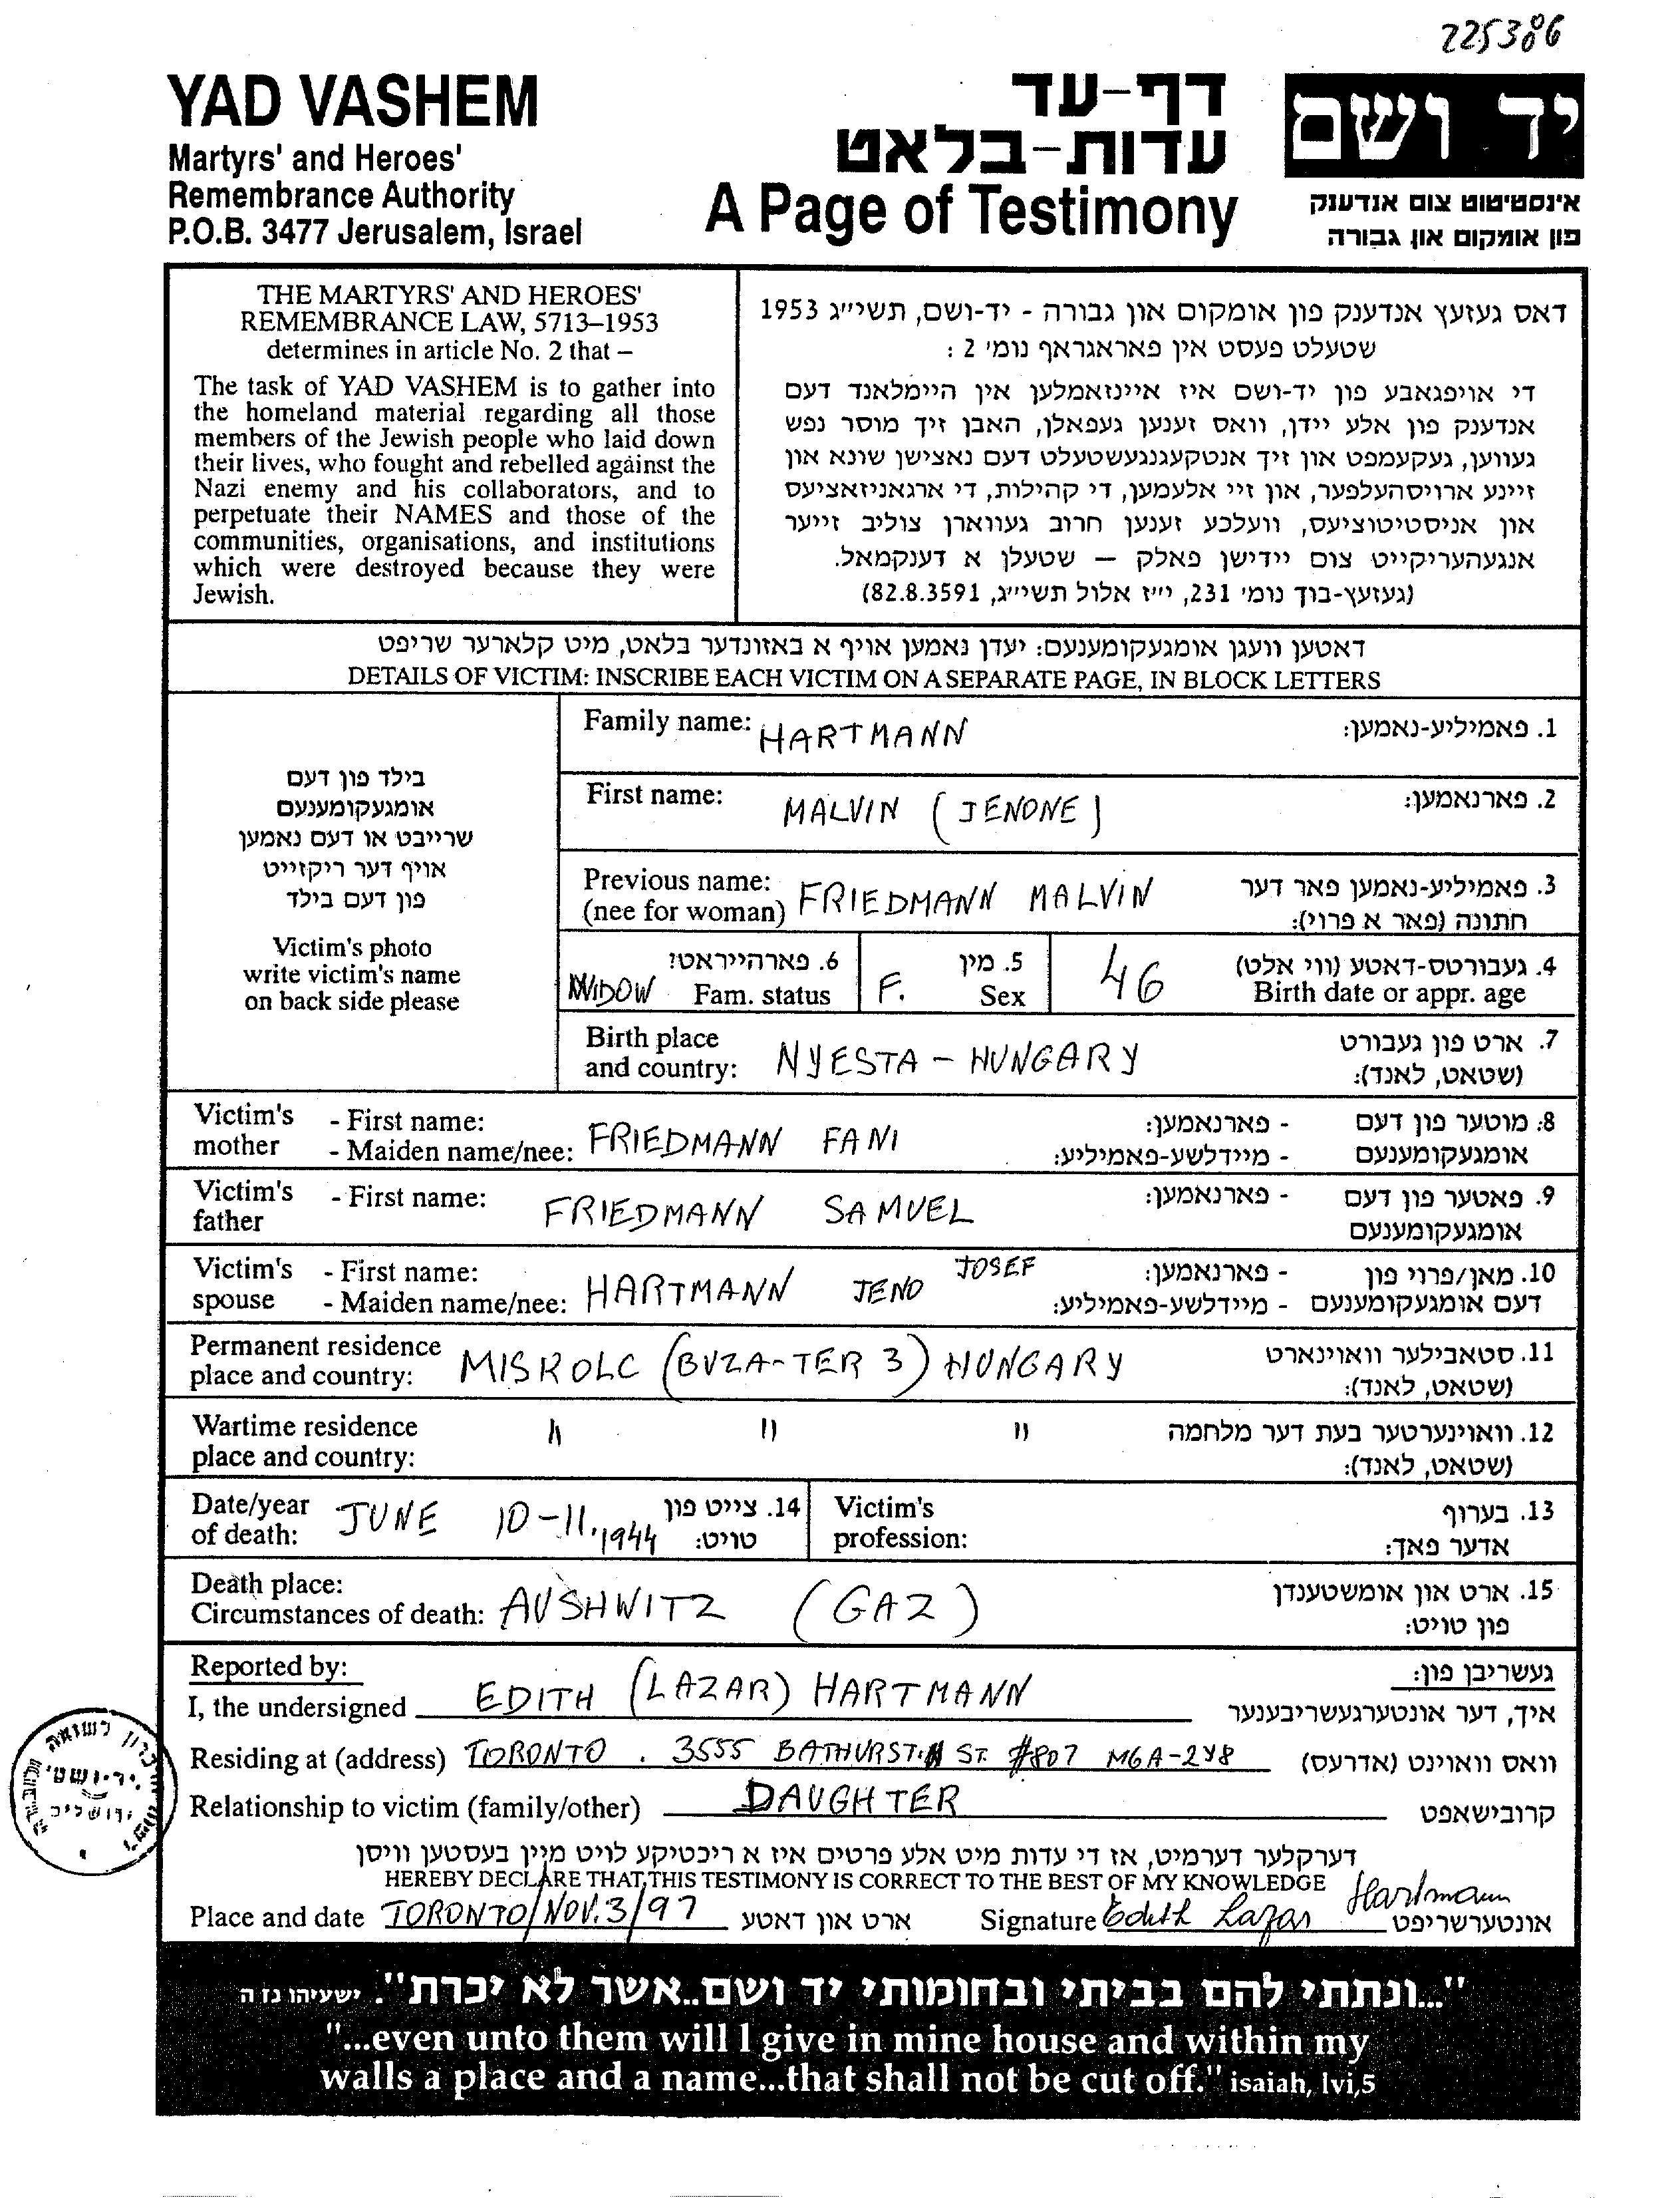 225386
YAD VASHEM
Martyrs' and Heroes'
Remembrance Authority
P.O.B. 3477 Jerusalem, Israel
דף-עד
עדות-בלאט
A Page of Testimony
יד ושם
אינסטיטוט צום אנדענק
פון אומקום און גבורה
THE MARTYRS' AND HEROES'
REMEMBRANCE LAW, 5713–1953
determines in article No. 2 that –
The task of YAD VASHEM is to gather into
the homeland material regarding all those
members of the Jewish people who laid down
their lives, who fought and rebelled against the
Nazi enemy and his collaborators, and to
perpetuate their NAMES and those of the
communities, organisations, and institutions
which were destroyed because they were
Jewish.
דאס געזעץ אנדענק פון אומקום און גבורה - יד-ושם, תשי״ג 1953
שטעלט פעסט אין פאראגראף נומ׳ 2 :
די אויפגאבע פון יד-ושם איז איינזאמלען אין היימלאנד דעם
אנדענק פון אלע יידן, וואס זענען געפאלן, האבן זיך מוסר נפש
געווען, געקעמפט און זיך אנטקעגנגעשטעלט דעם נאצישן שונא און
זיינע ארויסהעלפער, און זיי אלעמען, די קהילות, די ארגאניזאציעס
און אניסטיטוציעס, וועלכע זענען חרוב געווארן צוליב זייער
אנגעהעריקייט צום יידישן פאלק – שטעלן א דענקמאל.
(געזעץ-בוך נומ׳ 231, י״ז אלול תשי״ג, 82.8.3591)
דאטען וועגן אומגעקומענעם: יעדן נאמען אויף א באזונדער בלאט, מיט קלארער שריפט
DETAILS OF VICTIM: INSCRIBE EACH VICTIM ON A SEPARATE PAGE, IN BLOCK LETTERS
בילד פון דעם
אומגעקומענעם
שרייבט או דעם נאמען
אויף דער ריקזייט
פון דעם בילד
Victim's photo
write victim's name
on back side please
Family name: HARTMANN 1. פאמיליע-נאמען:
First name: MALVIN (JENONE) 2. פארנאמען:
Previous name: FRIEDMANN MALVIN 3. פאמיליע-נאמען פאר דער
(nee for woman) חתונה (פאר א פרוי):
6. פארהייראט? 5. מין 46 4. געבורטס-דאטע (ווי אלט)
WIDOW Fam. status F. Sex Birth date or appr. age
Birth place 7. ארט פון געבורט
and country: NYESTA - HUNGARY (שטאט, לאנד):
Victim's - First name: - פארנאמען: 8. מוטער פון דעם
mother - Maiden name/nee: FRIEDMANN FANI - מיידלשע-פאמיליע: אומגעקומענעם
Victim's - First name: FRIEDMANN SAMUEL - פארנאמען: 9. פאטער פון דעם
father אומגעקומענעם
Victim's - First name: JOSEF - פארנאמען: 10. מאן/פרוי פון
spouse - Maiden name/nee: HARTMANN JENO - מיידלשע-פאמיליע: דעם אומגעקומענעם
Permanent residence 11. סטאבילער וואוינארט
place and country: MISKOLC (BUZA-TER 3) HUNGARY (שטאט, לאנד):
Wartime residence " " " 12. וואוינערטער בעת דער מלחמה
place and country: (שטאט, לאנד):
Date/year JUNE 10-11. 1944 14. צייט פון
of death: טויט:
Victim's 13. בערוף
profession: אדער פאך:
Death place: 15. ארט און אומשטענדן
Circumstances of death: AUSHWITZ (GAZ) פון טויט:
Reported by: געשריבן פון:
I, the undersigned EDITH (LAZAR) HARTMANN איך, דער אונטערגעשריבענער
Residing at (address) TORONTO . 3555 BATHURST ST. #807 M6A-2Y8 וואס וואוינט (אדרעס)
Relationship to victim (family/other) DAUGHTER קרובישאפט
דערקלער דערמיט, אז די עדות מיט אלע פרטים איז א ריכטיקע לויט מיין בעסטען וויסן
HEREBY DECLARE THAT THIS TESTIMONY IS CORRECT TO THE BEST OF MY KNOWLEDGE
Place and date TORONTO/NOV. 3/97 ארט און דאטע Signature Edith Lazar Hartmann אונטערשריפט
ירושלים
"...ונתתי להם בביתי ובחומותי יד ושם..אשר לא יכרת". ישעיהו נו ה
"...even unto them will I give in mine house and within my
walls a place and a name...that shall not be cut off." isaiah, lvi,5